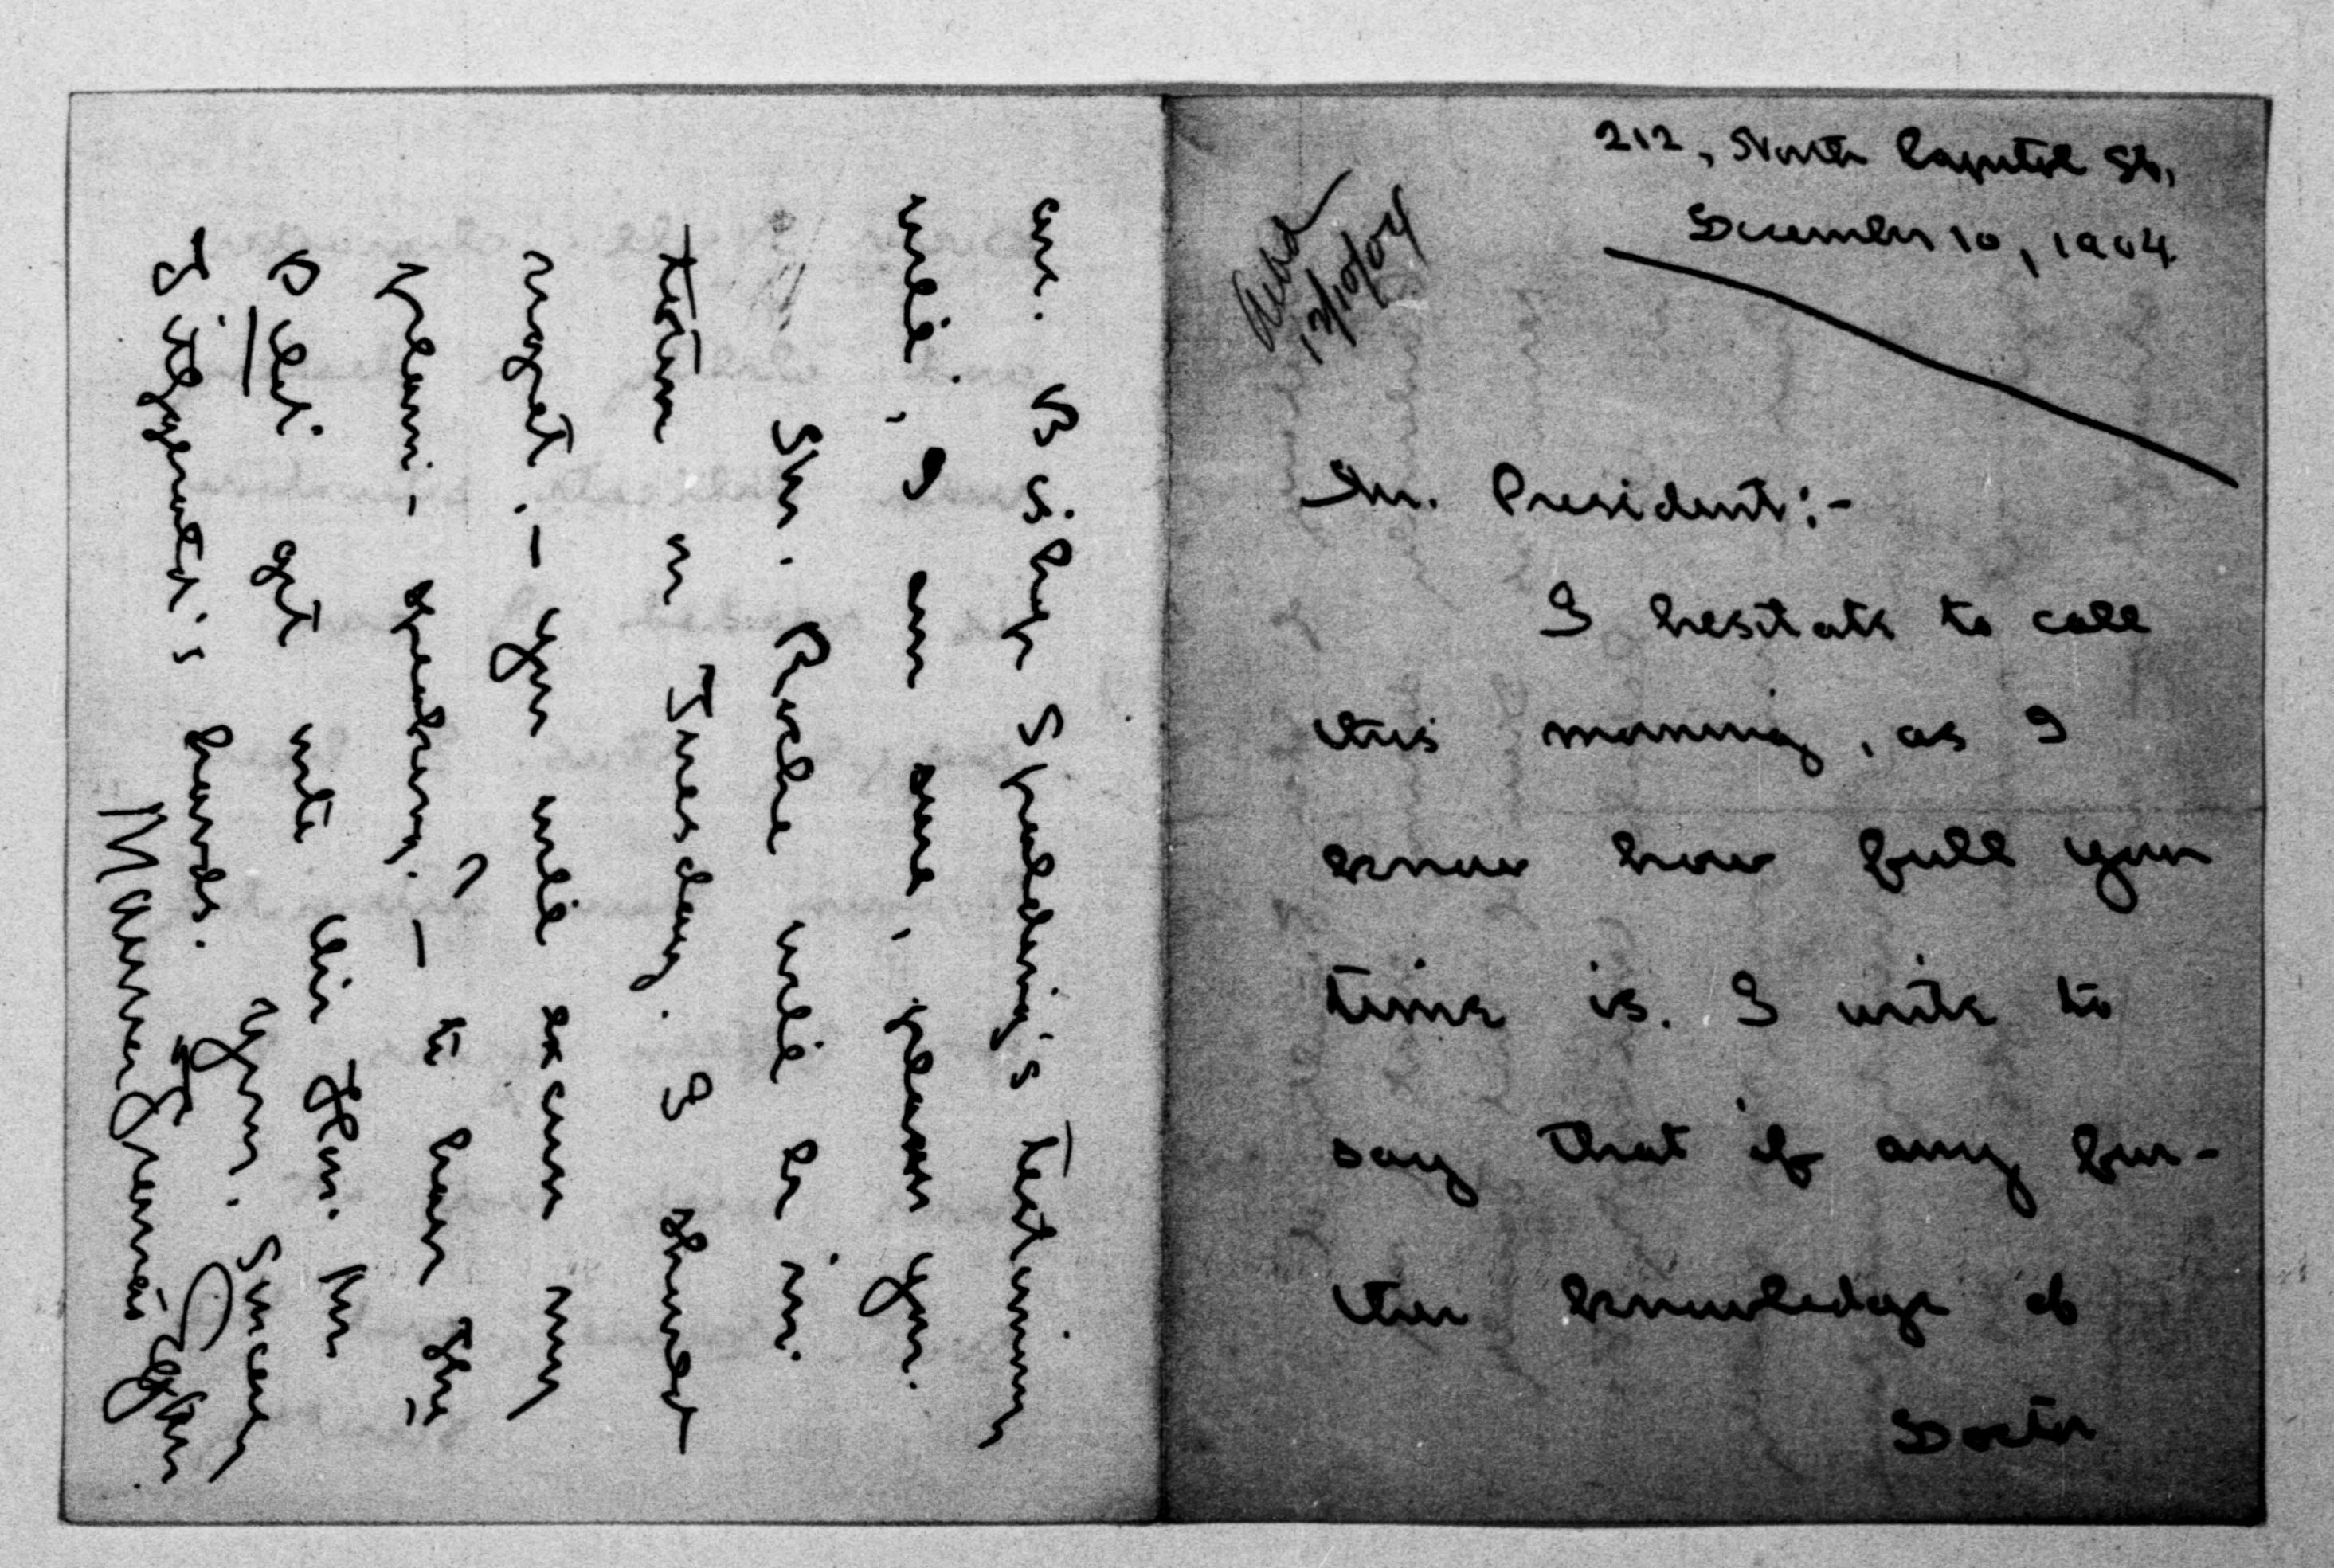 212, North Capitol St.,
December 10, 1904
Ackd
12/10/04
Mr. President:-
I hesitate to call
this morning, as I
know how full your
time is. I write to
say that if any fur-
ther knowledge of
Doctor
are. Bishop Spalding's testimony
will, I am sure, please you.
Mr. Roche will be in
town on Tuesday. I should
regret - you will excuse my
plain-speaking? - to have the
get into the Hon. Mr
Fitzgerald's hands. Yours, Sincerely
Maurice Francis Egan.